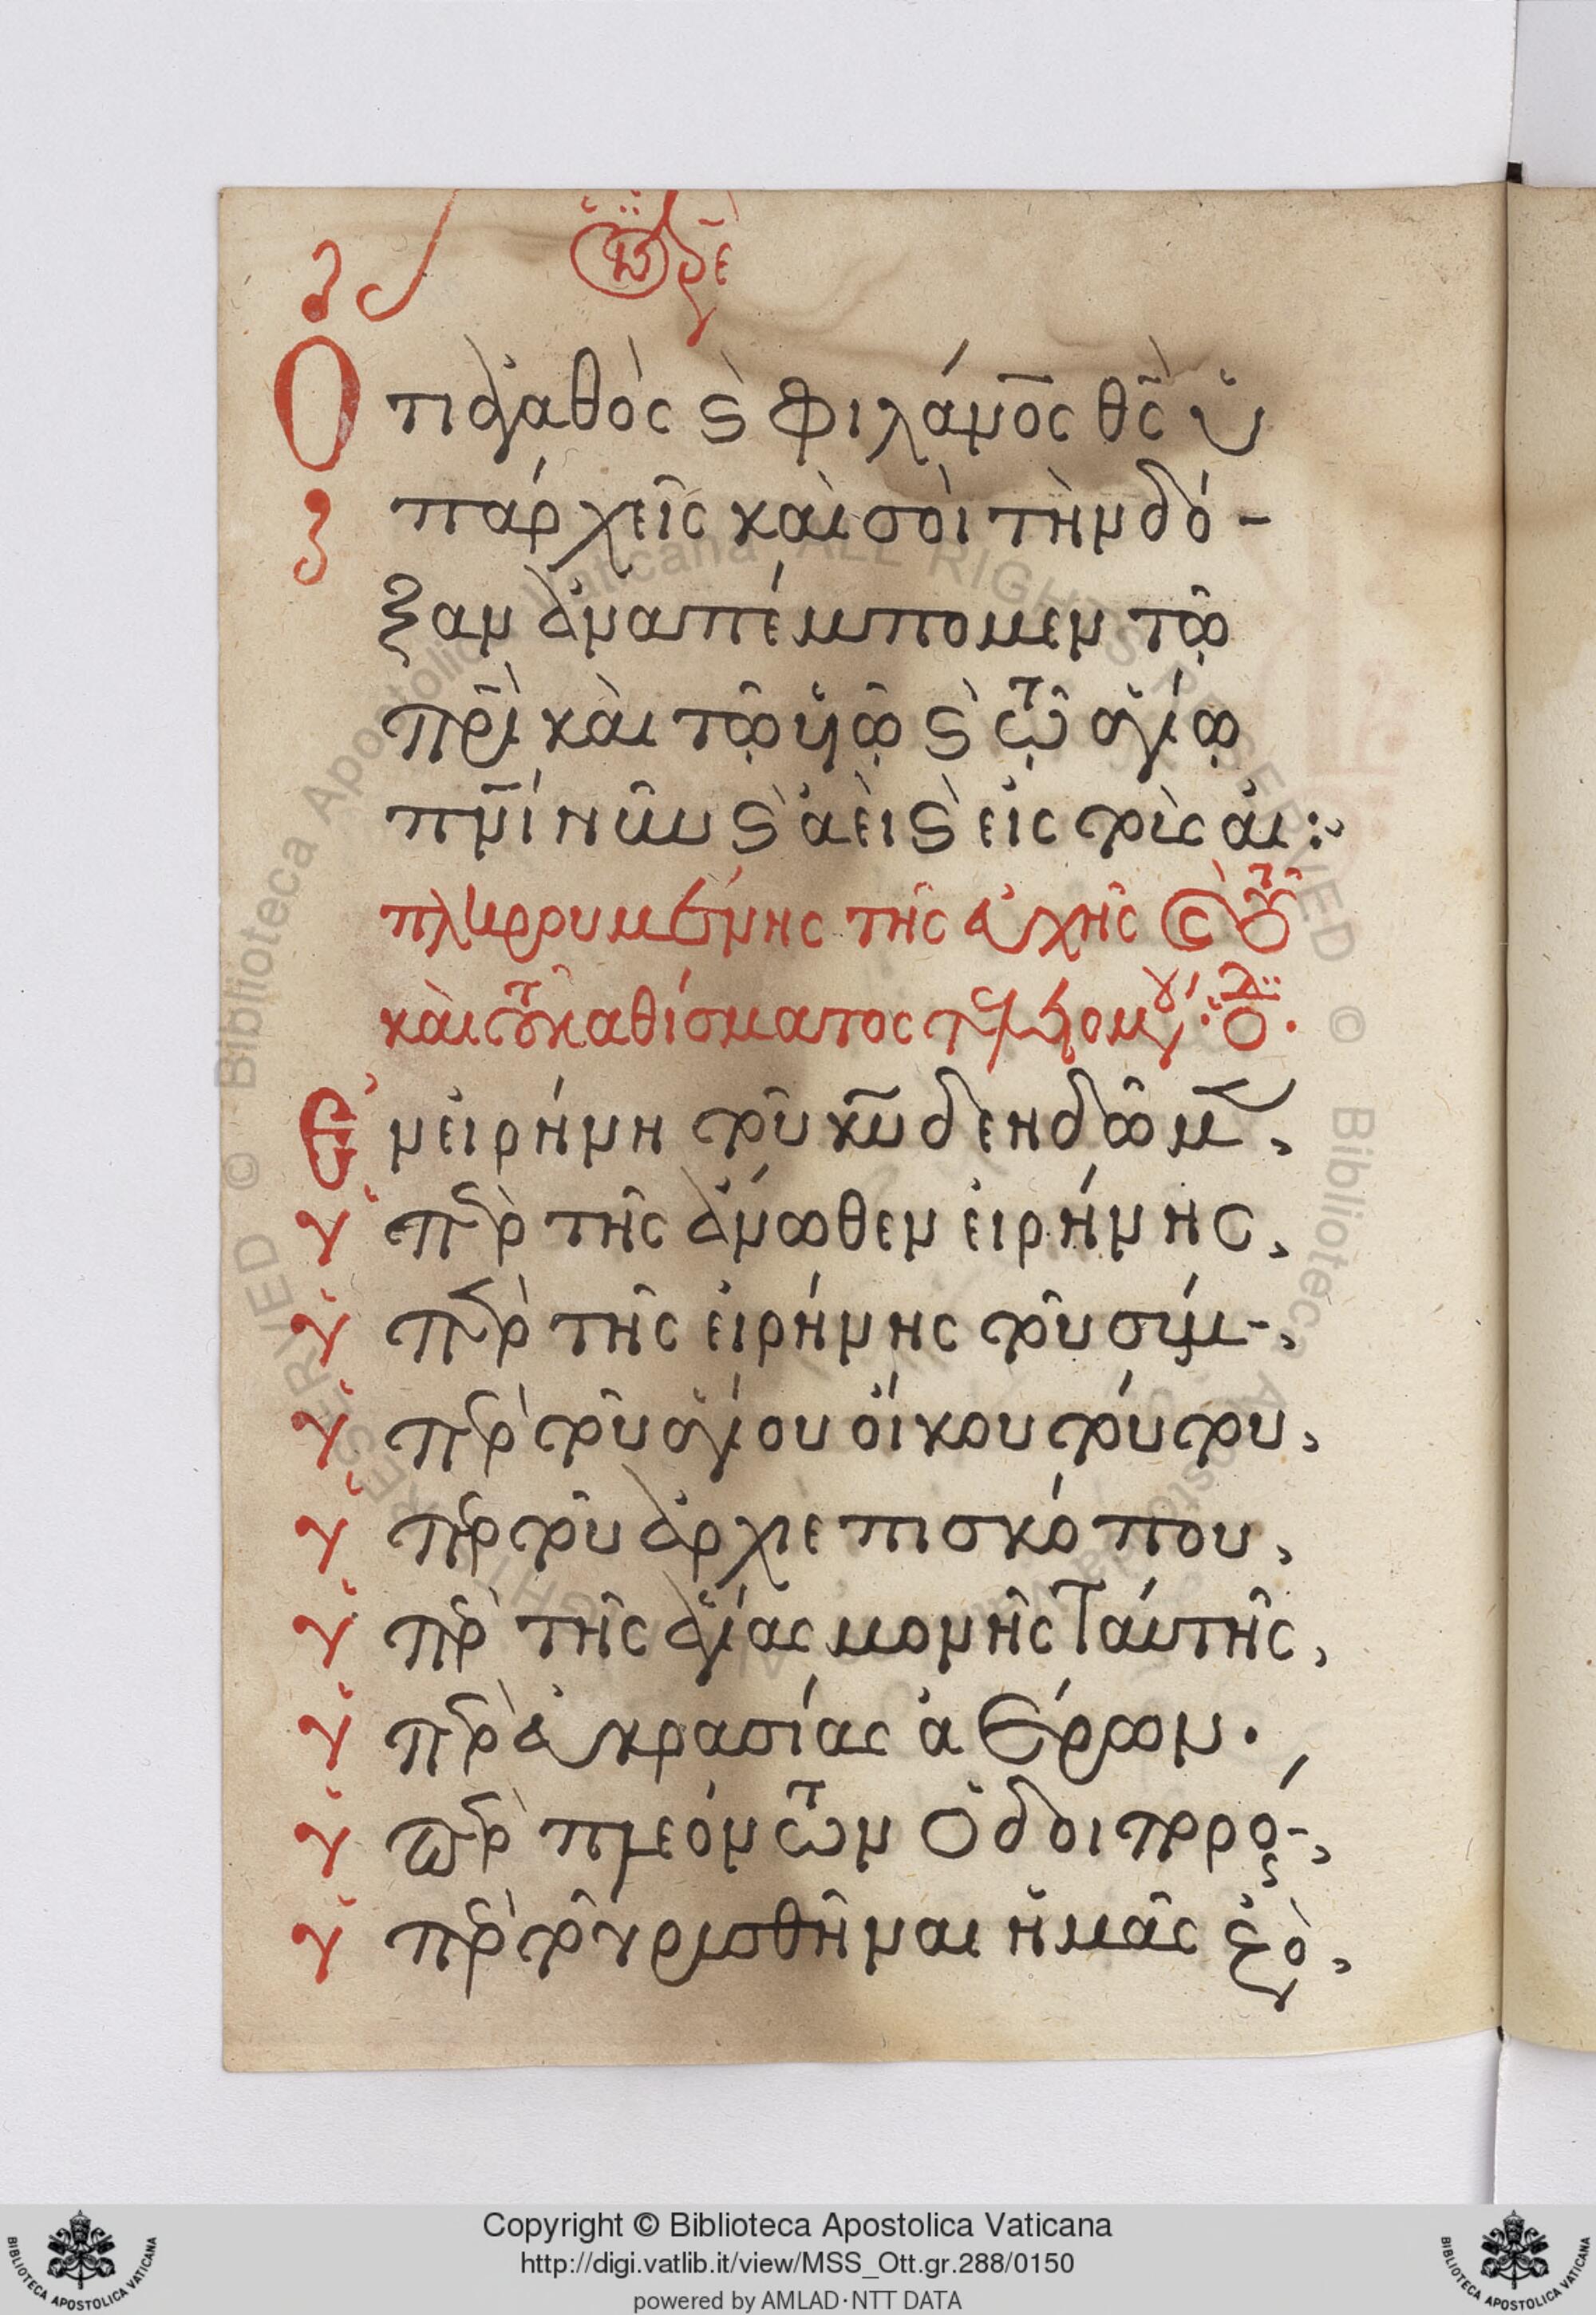 Ὅτι ἀγαθὸς ϗ φιλάν̅ο̅ς θ̅ς̅ ὑ
πάρχεις καὶ σοὶ τὴν δό-
ξαν ἀναπέμπομεν τῷ
πρ̅ι̅ καὶ τῷ ὑῷ ϗ τῷ ἁγίῳ
πν̅ι̅ νῦν ϗ ἀεὶ ϗ εἰς τοὺς αἰ:
πληρουμένης τῆς εὐχῆς
καὶ τοῦ καθίσματος
Ἐν εἰρήνῃ τοῦ κ̅υ̅ δεηδῶμ,
ὑπὲρ τῆς ἄνωθεν εἰρήνης,
ὑπὲρ τῆς εἰρήνης τοῦ σύμ-,
ὑπὲρ τοῦ ἁγίου οἴκου τούτου,
ὑπὲρ τοῦ ἀρχιεπισκόπου,
ὑπὲρ τῆς ἁγίας μονῆς ταύτης,
ὑπὲρ εὐκρασίας ἀέρων.
ὑπὲρ πλεόντων ὁδοιπρό-,
ὑπὲρ τοῦ ῥυσθῆναι ἡμᾶς
Copyright © Biblioteca Apostolica Vaticana
http://digi.vatlib.it/view/MSS_Ott.gr.288/0150
powered by AMLAD·NTT DATA
BIBLIOTECA APOSTOLICA VATICANA
BIBLIOTECA APOSTOLICA VATICANA